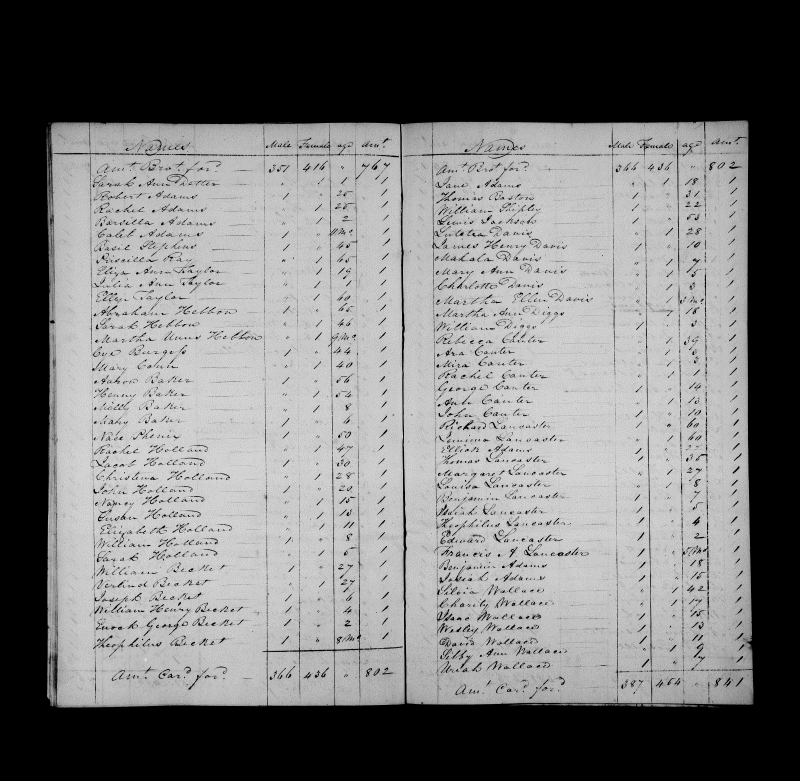 Names Male Female age Amt.
Amt. Brot. for. 351 416 " 767
Sarah Ann Detter " 1 1 1
Robert Adams 1 " 25 1
Rachel Adams " 1 25 1
Barsilla Adams 1 2 1
Caleb Adams 1 " 11 Mo. 1
Basil Stephens 1 " 45 1
Priscilla Ray " 1 65 1
Eliza Ann Taylor " 1 19 1
Julia Ann Taylor " 1 1 1
Ellen Taylor 1 60 1
Abraham Hebbon 1 " 65 1
Sarah Hebbon " 1 46 1
Martha Unns Hebbon " 1 9 Mo. 1
Eye Burgess 1 " 44 1
Mary Cohn " 1 40 1
Aaron Baker 1 " 56 1
Henny Baker " 1 54 1
Milly Baker 1 8 1
Mary Baker 1 6 1
Nace Phenix 1 " 50 1
Rachel Holland " 1 47 1
Jacob Holland 1 " 30 1
Christena Holland " 1 28 1
John Holland 1 " 20 1
Nancy Holland " 1 15 1
Susan Holland " 1 13 1
Elizabeth Holland " 1 11 1
William Holland 1 " 8 1
Sarah Holland " 1 5 1
William Becket 1 " 27 1
Verlind Becket " 1 27 1
Joseph Becket 1 " 6 1
William Henry Becket 1 " 4 1
Enoch George Becket 1 " 2 1
Theophilus Becket 1 " 8 Mo. 1
Amt. Card. for. 366 436 " 802
Names Male Female age Amt.
Amt. Brot for. 366 436 " 802
Jane Adams " 1 18 1
Thomas Baston 1 " 31 1
William Shipley 1 " 22 1
Lewis Jackson 1 " 53 1
Lutetea Davis " 1 28 1
James Henry Davis 1 " 10 1
Mahala Davis " 1 7 1
Mary Ann Davis " 1 5 1
Charlotte Davis 1 3 1
Martha Ellen Davis 1 3 Mo. 1
Martha Ann Diggs 18 1
William Diggs 1 " 3 1
Rebecca Canter " 1 39 1
Ara Canter 1 1
Mira Canter 1 1
Rachel Canter " 1 1 1
George Canter 1 " 14 1
Ann Canter " 1 13 1
John Canter 1 " 10 1
Richard Lancaster 1 " 60 1
Lemima Lancaster 1 60 1
Ellick Adams 1
Thomas Lancaster 1 " 35 1
Margaret Lancaster " 1 27 1
Louisa Lancaster " 1 8 1
Benjamin Lancaster 1 " 7 1
Josiah Lancaster 1 " 5 1
Theophilus Lancaster 1 " 4 1
Edward Lancaster 1 " 2 1
Francis A. Lancaster " 5 Mo 1
Benjamin Adams 1 " 18 1
Josiah Adams 1 " 15 1
Silvia Wallace " 1 42 1
Charity Wallace " 1 17 1
Isaac Wallace 1 " 15 1
Wesley Wallace 1 " 13 1
David Wallace 1 " 11 1
Silby Ann Wallace 1 9 1
Uriah Wallace 1 " 7 1
Amt. Card for. 387 454 " 841